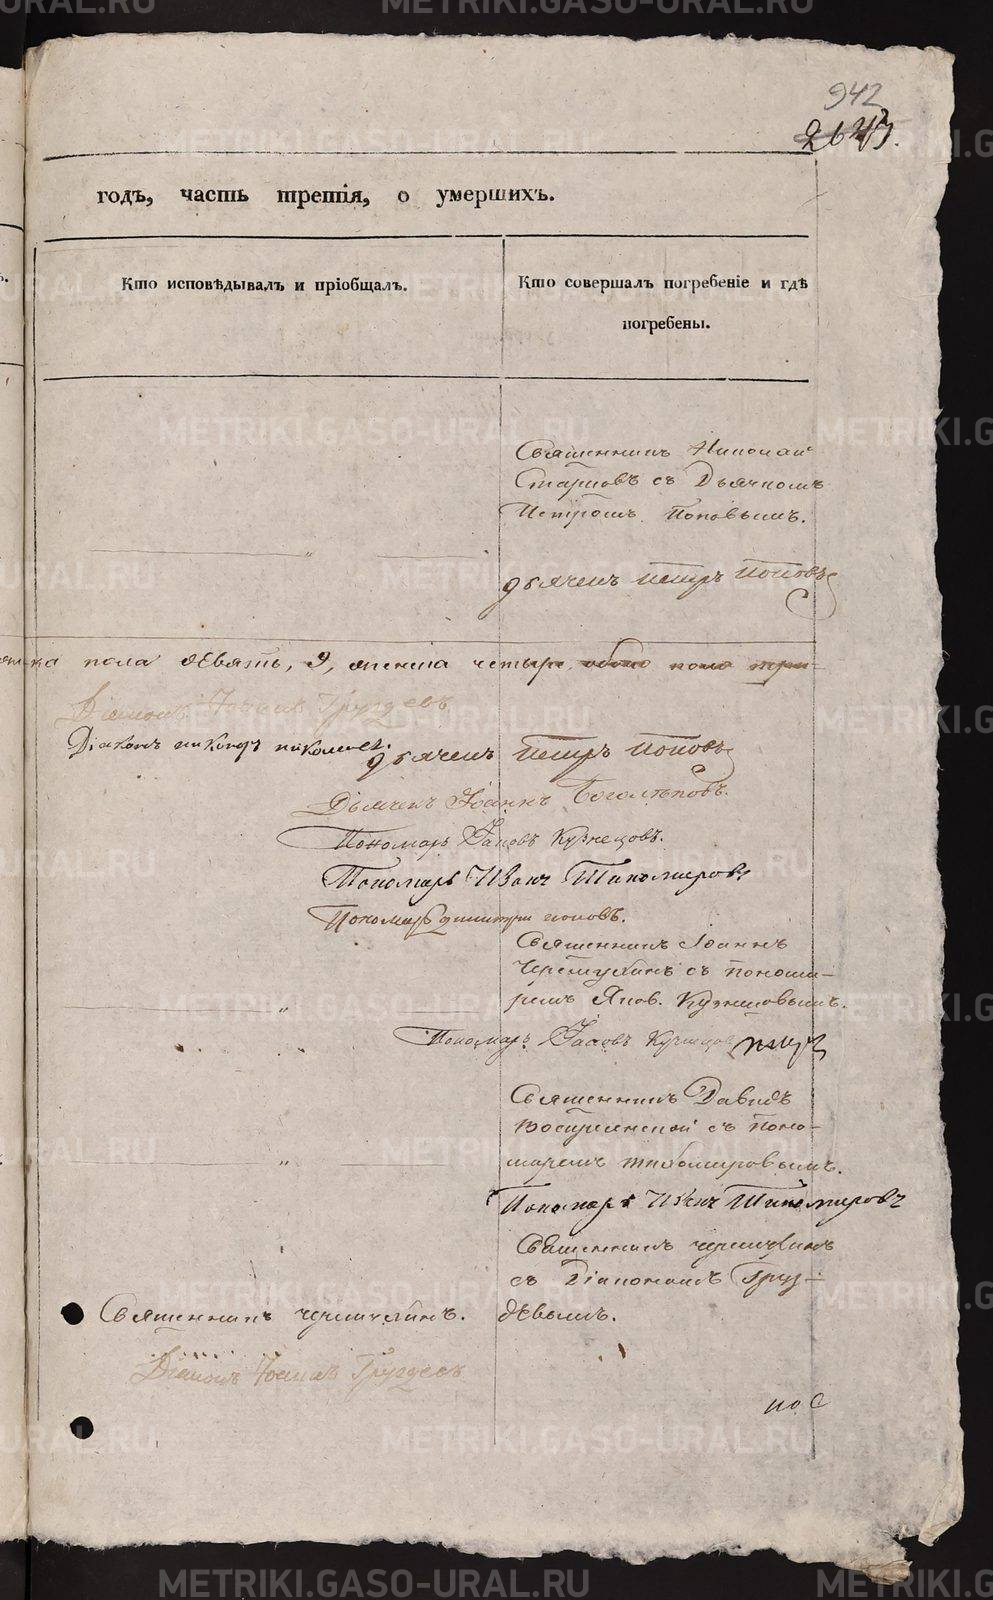 942
2643.
годъ, часть третія, о умершихъ.
Кто исповѣдывалъ и пріобщалъ.
Кто совершалъ погребеніе и гдѣ
погребены.
Священникъ Николай
Старцовъ съ Дьячкомъ
Петромъ Поповымъ.
дьячекъ петръ поповъ
пола девять, 9, женска четыре обоего пола три-
Діаконъ Іоаннъ Груздевъ
Діаконъ
дьячекъ петръ поповъ
Дьячекъ Іоаннъ Боголѣповъ.
Пономарь Іаковъ Кузнецовъ.
Пономарь Иванъ Тихомировъ
Пономарь димитри поповъ.
Священникъ Іоаннъ
съ понома-
ремъ Яков. Кузнецовымъ.
Пономарь Іаковъ Кузнецовъ
Священникъ Давидъ
съ поно-
маремъ тихомировымъ.
Пономарь Иванъ Тихомировъ
Священникъ
съ Діакономъ Груз-
девымъ.
Священникъ
Діаконъ Іоаннъ Груздевъ
по С
METRIKI.GASO-URAL.RU